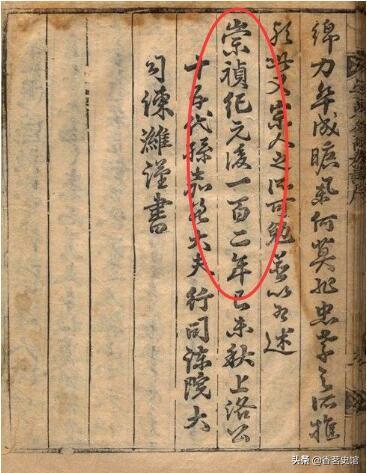 綿力年成何莫非忠孝之所推
又宗人之所可勉並以為述
崇禎紀元後一百二年己未秋上洛公
十五代孫嘉善大夫行司諫院大
司諫濰謹書
头条 @香茗史馆